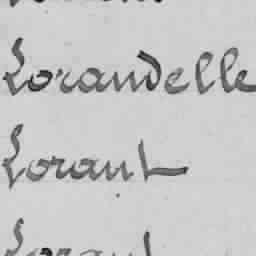 Lorandelle
Lorant